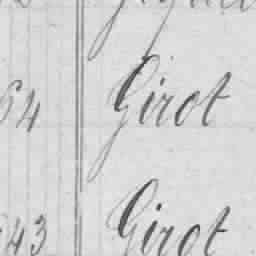 64 Girot
43 Girot